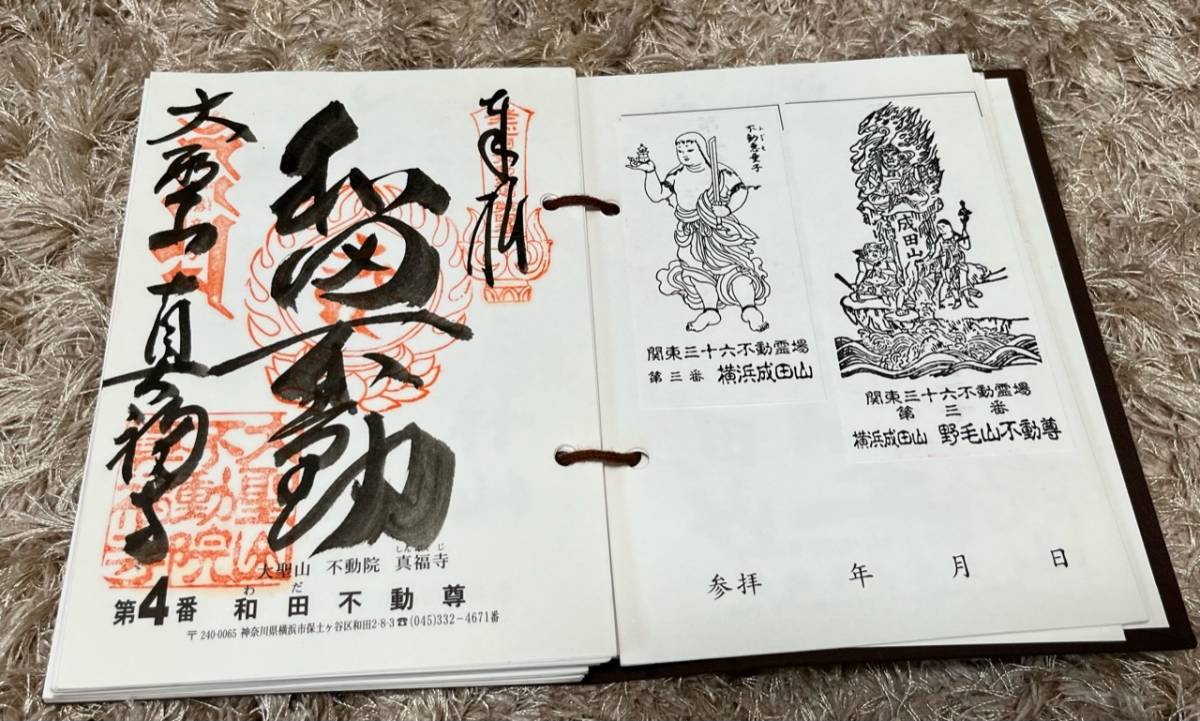 奉拝
和田不動
大聖山 真福寺
大聖山 不動院 真福寺
しんぷくじ
第4番 和田不動尊
わだ
〒240-0065 神奈川県横浜市保土ヶ谷区和田2-8-3☎(045)332-4671番
成田山
関東三十六不動霊場
第三番 横浜成田山
関東三十六不動霊場
第三番
横浜成田山 野毛山不動尊
参拝 年 月 日